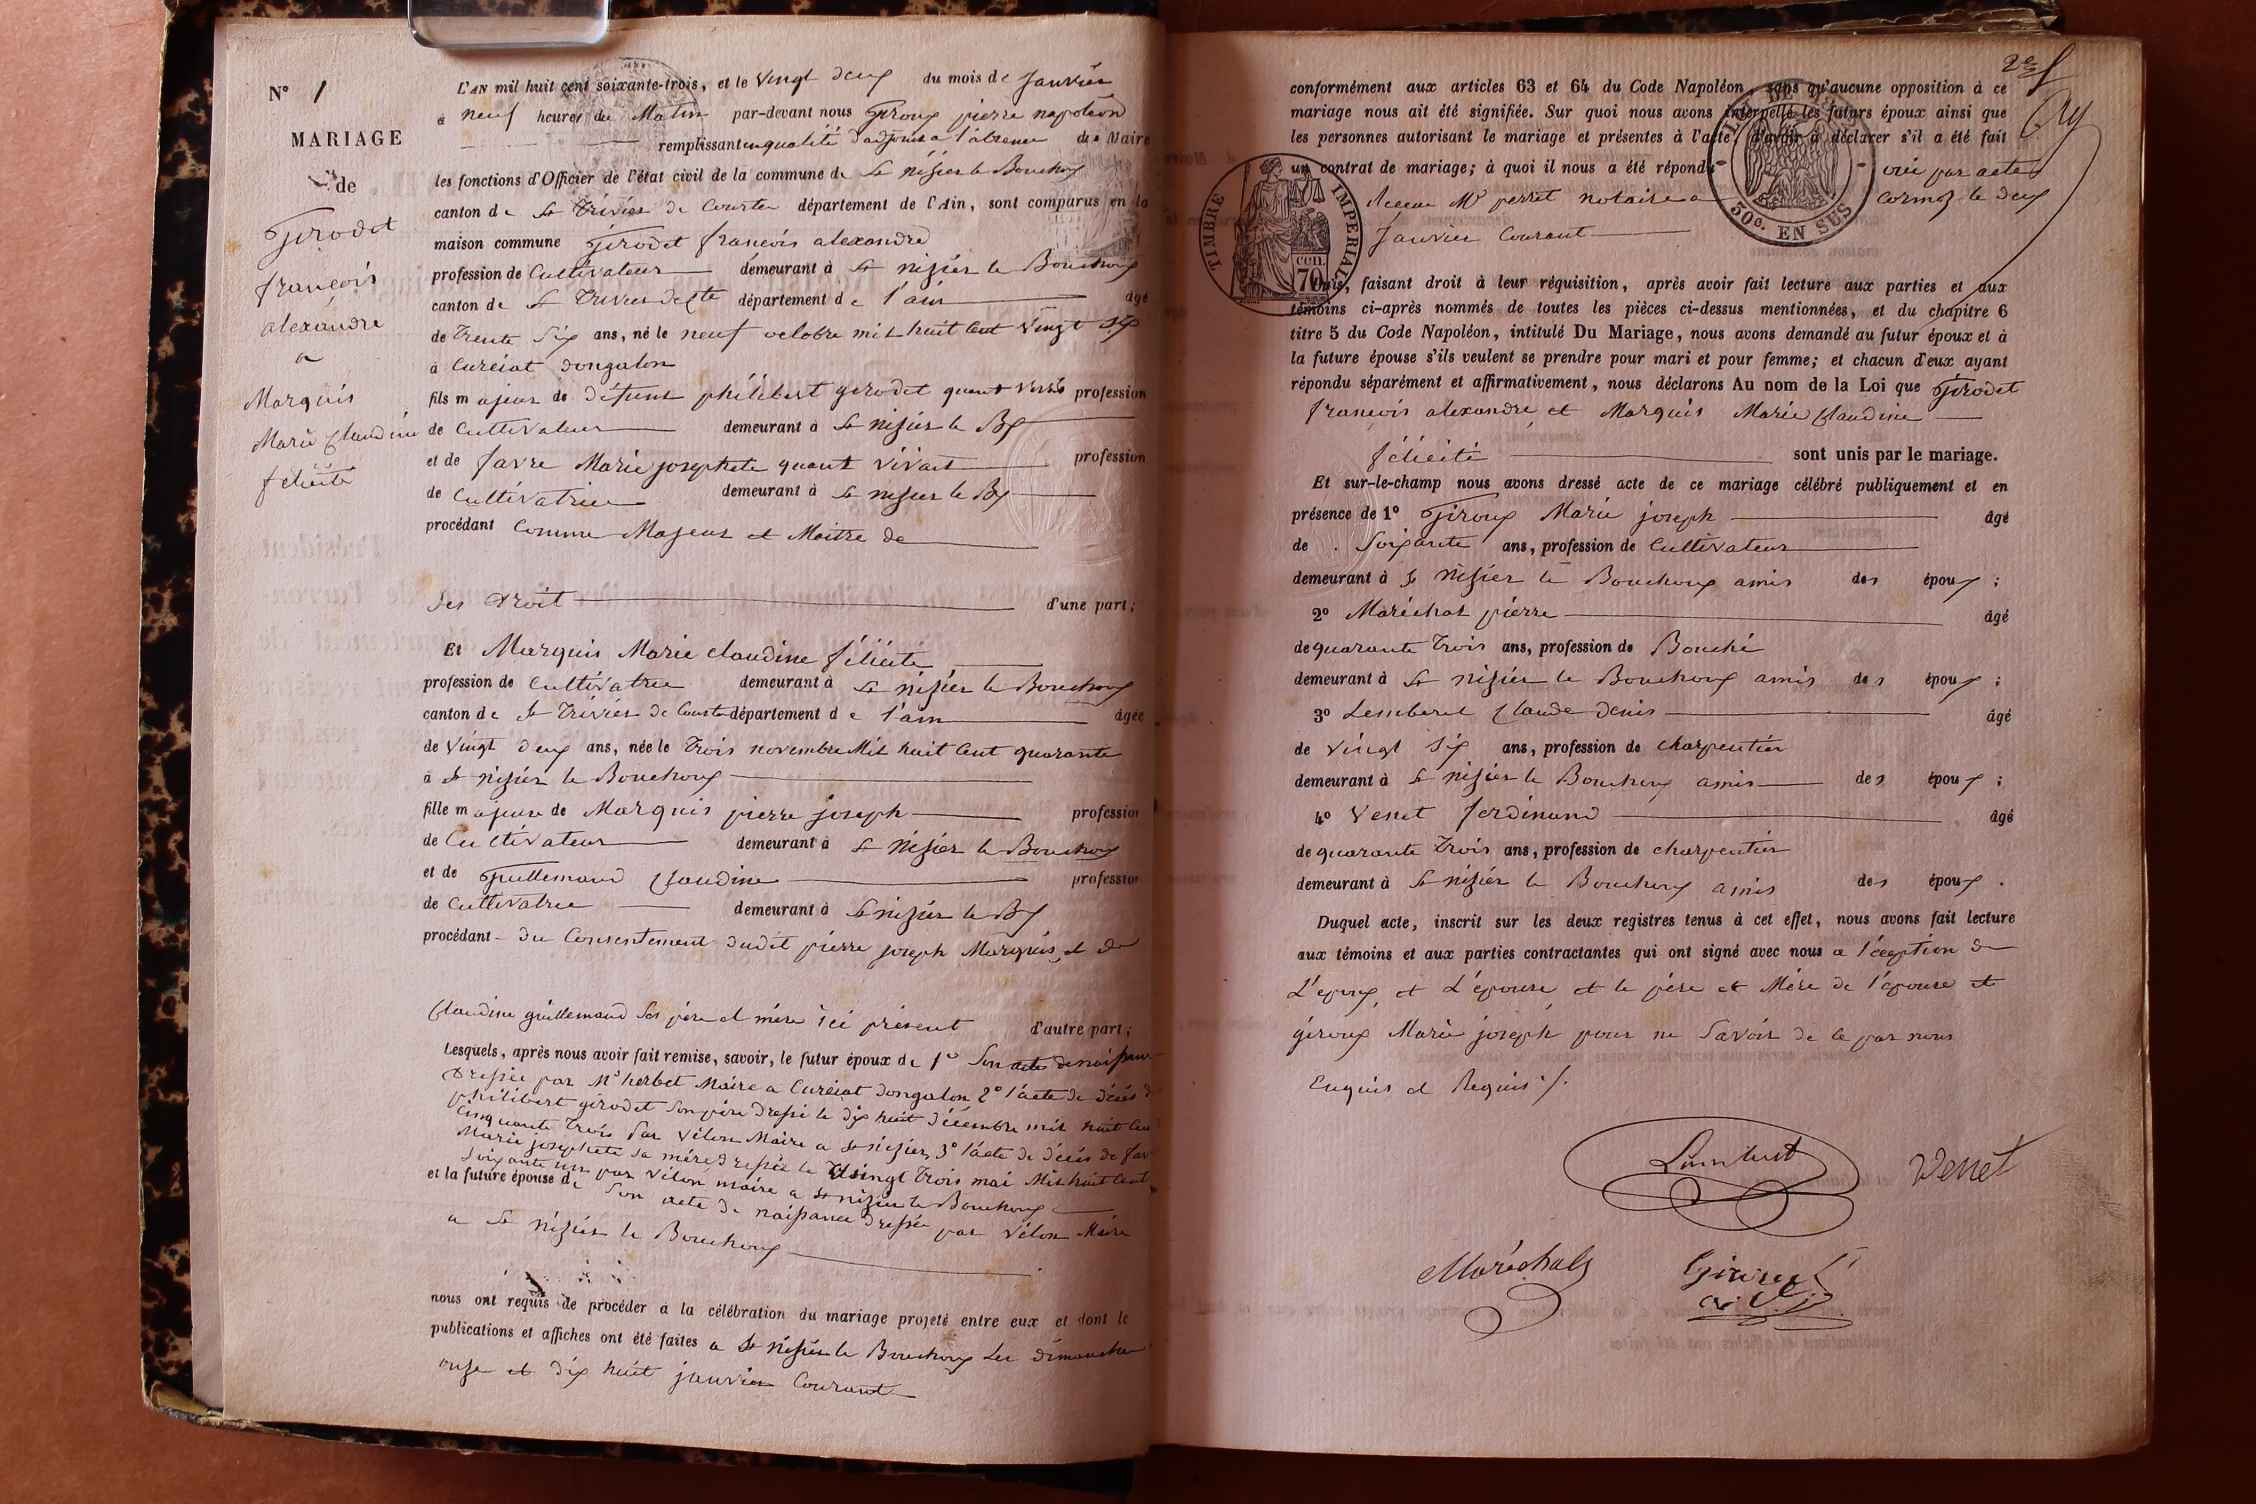 N° 1
MARIAGE
de
Girodet
françois
alexandre
a
Marquis
Marie Claudine
félicité
L'AN mil huit cent soixante-trois, et le vingt deux du mois de Janvier
à neuf heures du Matin par-devant nous Giroux pierre napoléon
remplissant en qualité d'adjoint a l'absence du Maire
les fonctions d'Officier de l'état civil de la commune de St nizier le Bouchoux
canton de St Trivier de Courtes département de l'Ain, sont comparus en la
maison commune Girodet françois alexandre
profession de Cultivateur demeurant à St nizier le Bouchoux
canton de St Trivier de Cte département de l'ain âgé
de Trente Six ans, né le neuf octobre mil huit Cent Vingt Six
à Curciat dongalon
fils majeur de défunt philibert girodet quant vivait profession
de Cultivateur demeurant à St nizier le Bx
et de favre Marie josephete quant vivait profession
de Cultivatrice demeurant à St nizier le Bx
procédant Comme Majeur et Maitre de
Ses droit d'une part;
Et Marquis Marie claudine félicité
profession de Cultivatrice demeurant à St nizier le Bouchoux
canton de St Trivier de Courtes département de l'ain âgée
de Vingt deux ans, née le Trois novembre Mil huit Cent quarante
à St nizier le Bouchoux
fille majeure de Marquis pierre joseph profession
de Cultivateur demeurant à St Nizier le Bouchoux
et de Guillemaud Claudine profession
de Cultivatrice demeurant à St nizier le Bx
procédant du Consentement dudit pierre joseph Marquis et de
Claudine guillemaud Ses père et mère ici présent d'autre part;
Lesquels, après nous avoir fait remise, savoir, le futur époux de 1° Son acte de naissance
Dressée par Mr herbet Maire a Curciat dongalon 2° l'acte de décès de
philibert girodet Son père dressé le dix huit décembre mil huit Cent
Cinquante Trois par Vélon Maire a St nizier 3° l'acte de décès de fav
Marie josephete sa mère dressée le vingt Trois mai Mil huit Cent
Soixante un par Vélon maire a St nizier le Bouchoux
et la future épouse de Son acte de naissance dressée par Vélon Maire
a St nizier le Bouchoux
nous ont requis de procéder à la célébration du mariage projeté entre eux et dont le
publications et affiches ont été faites a St nizier le Bouchoux Les dimanches
onze et dix huit janvier Courant
conformément aux articles 63 et 64 du Code Napoléon, sans qu'aucune opposition à ce
mariage nous ait été signifiée. Sur quoi nous avons interpellé les futurs époux ainsi que
les personnes autorisant le mariage et présentes à l'acte, d'avoir à déclarer s'il a été fait
un contrat de mariage; à quoi il nous a été répondu oui par acte
Recu Mr perret notaire a Cormoz le deux
Janvier Courant
TIMBRE IMPERIAL
70 cen
30c. EN SUS
Puis, faisant droit à leur réquisition, après avoir fait lecture aux parties et aux
témoins ci-après nommés de toutes les pièces ci-dessus mentionnées, et du chapitre 6
titre 5 du Code Napoléon, intitulé Du Mariage, nous avons demandé au futur époux et à
la future épouse s'ils veulent se prendre pour mari et pour femme; et chacun d'eux ayant
répondu séparément et affirmativement, nous déclarons Au nom de la Loi que Girodet
françois alexandre et Marquis Marie Claudine
félicité sont unis par le mariage.
Et sur-le-champ nous avons dressé acte de ce mariage célébré publiquement et en
présence de 1° Giroux Marie joseph âgé
de Soixante ans, profession de Cultivateur
demeurant à St nizier le Bouchoux amis des époux;
2° Maréchal pierre âgé
de quarante Trois ans, profession de Bouché
demeurant à St nizier le Bouchoux amis des époux;
3° Lemberet Claude denis âgé
de vingt six ans, profession de charpentier
demeurant à St nizier le Bouchoux amis des époux;
4° Venet ferdinand âgé
de quarante Trois ans, profession de charpentier
demeurant à St nizier le Bouchoux amis des époux.
Duquel acte, inscrit sur les deux registres tenus à cet effet, nous avons fait lecture
aux témoins et aux parties contractantes qui ont signé avec nous a l'éception de
L'epoux et L'épouse et le père et Mère de l'épouse et
giroux Marie joseph pour ne Savoir de ce par nous
Enquis et Requis ./.
Venet
Maréchal
Giroux